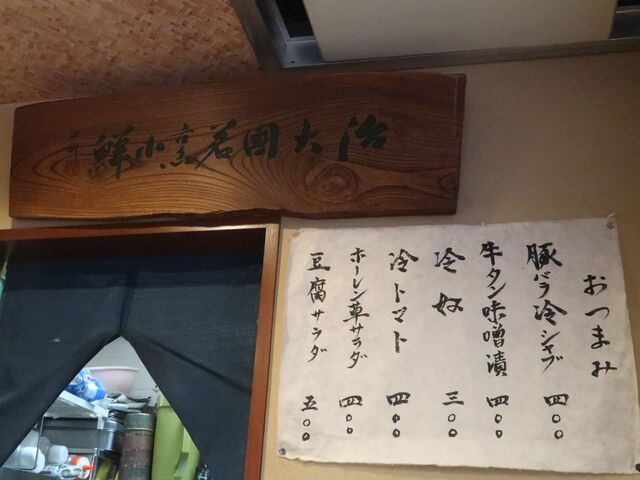 治大国若烹小鮮
おつまみ
豚バラ冷シャブ 四〇〇
牛タン味噌漬 四〇〇
冷奴 三〇〇
冷トマト 四〇〇
ホーレン草サラダ 四〇〇
豆腐サラダ 五〇〇